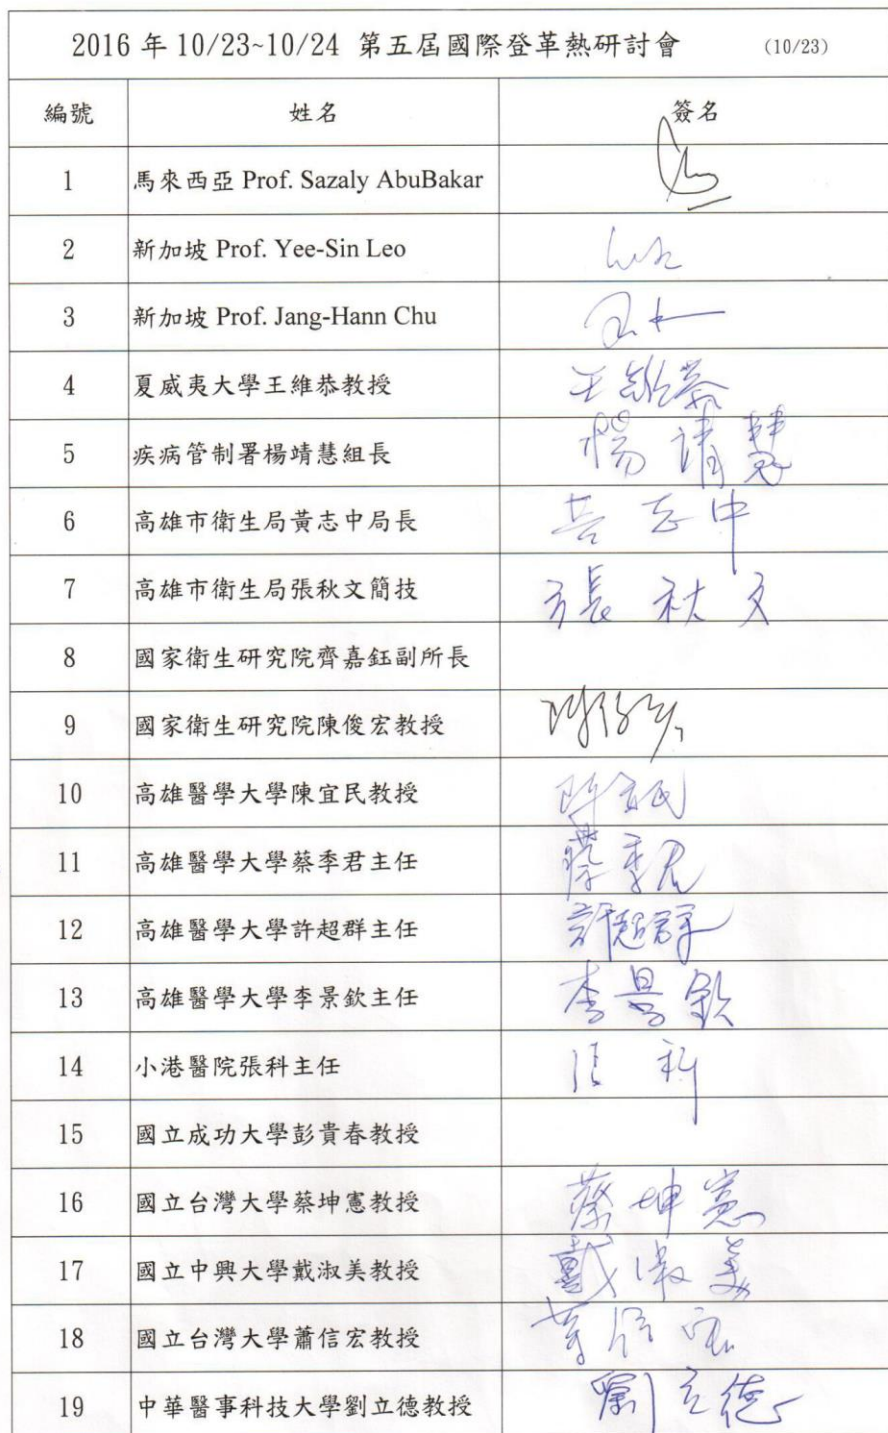 2016 年 10/23~10/24 第五屆國際登革熱研討會 (10/23)
編號 姓名 簽名
1 馬來西亞 Prof. Sazaly AbuBakar
2 新加坡 Prof. Yee-Sin Leo
3 新加坡 Prof. Jang-Hann Chu
4 夏威夷大學王維恭教授 王維恭
5 疾病管制署楊靖慧組長 楊靖慧
6 高雄市衛生局黃志中局長 黃志中
7 高雄市衛生局張秋文簡技 張秋文
8 國家衛生研究院齊嘉鈺副所長
9 國家衛生研究院陳俊宏教授
10 高雄醫學大學陳宜民教授 陳宜民
11 高雄醫學大學蔡季君主任 蔡季君
12 高雄醫學大學許超群主任 許超群
13 高雄醫學大學李景欽主任 李景欽
14 小港醫院張科主任 張科
15 國立成功大學彭貴春教授
16 國立台灣大學蔡坤憲教授 蔡坤憲
17 國立中興大學戴淑美教授 戴淑美
18 國立台灣大學蕭信宏教授 蕭信宏
19 中華醫事科技大學劉立德教授 劉立德